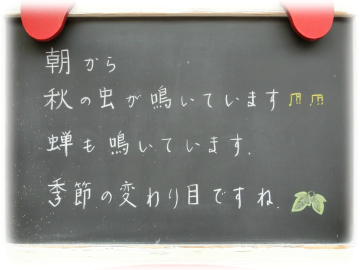 朝から
秋の虫が鳴いています
蝉も鳴いています.
季節の変わり目ですね.